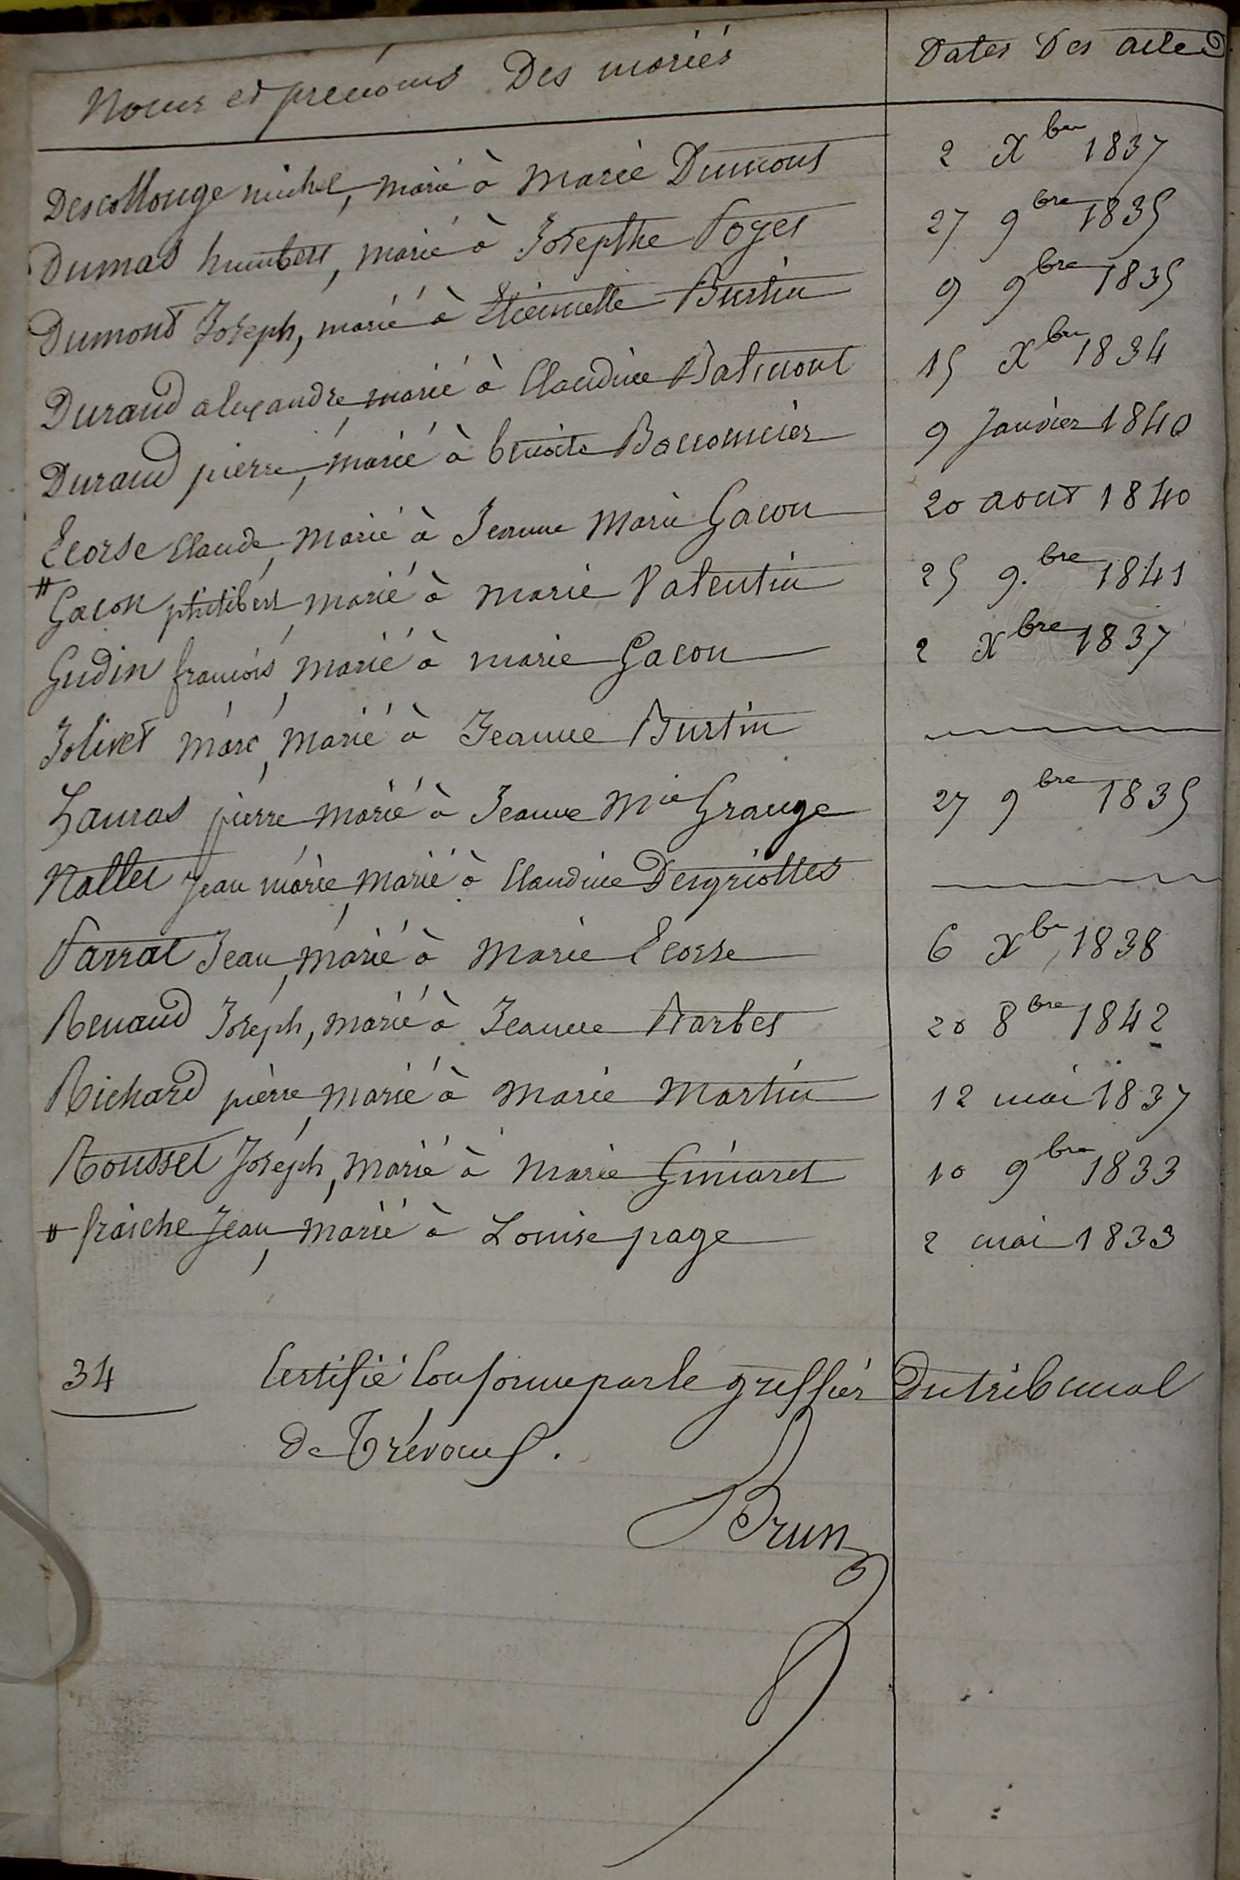 Noms et prénoms Des mariés Dates Des actes
Descollonge michel, marié à Marie Dumont 2 Xbre 1837
Dumas humbert, marié à Josepthe Poyet 27 9bre 1835
Dumont Joseph, marié à Etiennette Burtin 9 9bre 1835
Durand alexandre, marié à Claudine 15 Xbre 1834
Durand pierre, marié à benoite 9 Janvier 1840
Ecorse Claude, Marié à Jeanne Marie Gacon 20 aout 1840
# Gacon philibert, marié à Marie Valentin 25 9.bre 1841
Gudin francois, Marié à marie Gacon 2 Xbre 1837
Jolivet Marc, Marié à Jeanne Burtin
Lauras pierre Marié à Jeanne Mie Grange 27 9bre 1835
Nallet Jean marie, Marié à Claudine Desgriottes
Parrat Jean, Marié à Marie Ecorse 6 Xbre 1838
Renaud Joseph, marié à Jeanne Barbet 20 8bre 1842
Richard pierre, Marié à Marie Martin 12 mai 1837
Rousset Joseph, Marié à Marie 10 9bre 1833
# fraiche Jean, Marié à Louise page 2 mai 1833
34 Certifié Conforme par le greffier Du tribunal
De Trévoux.
Brun